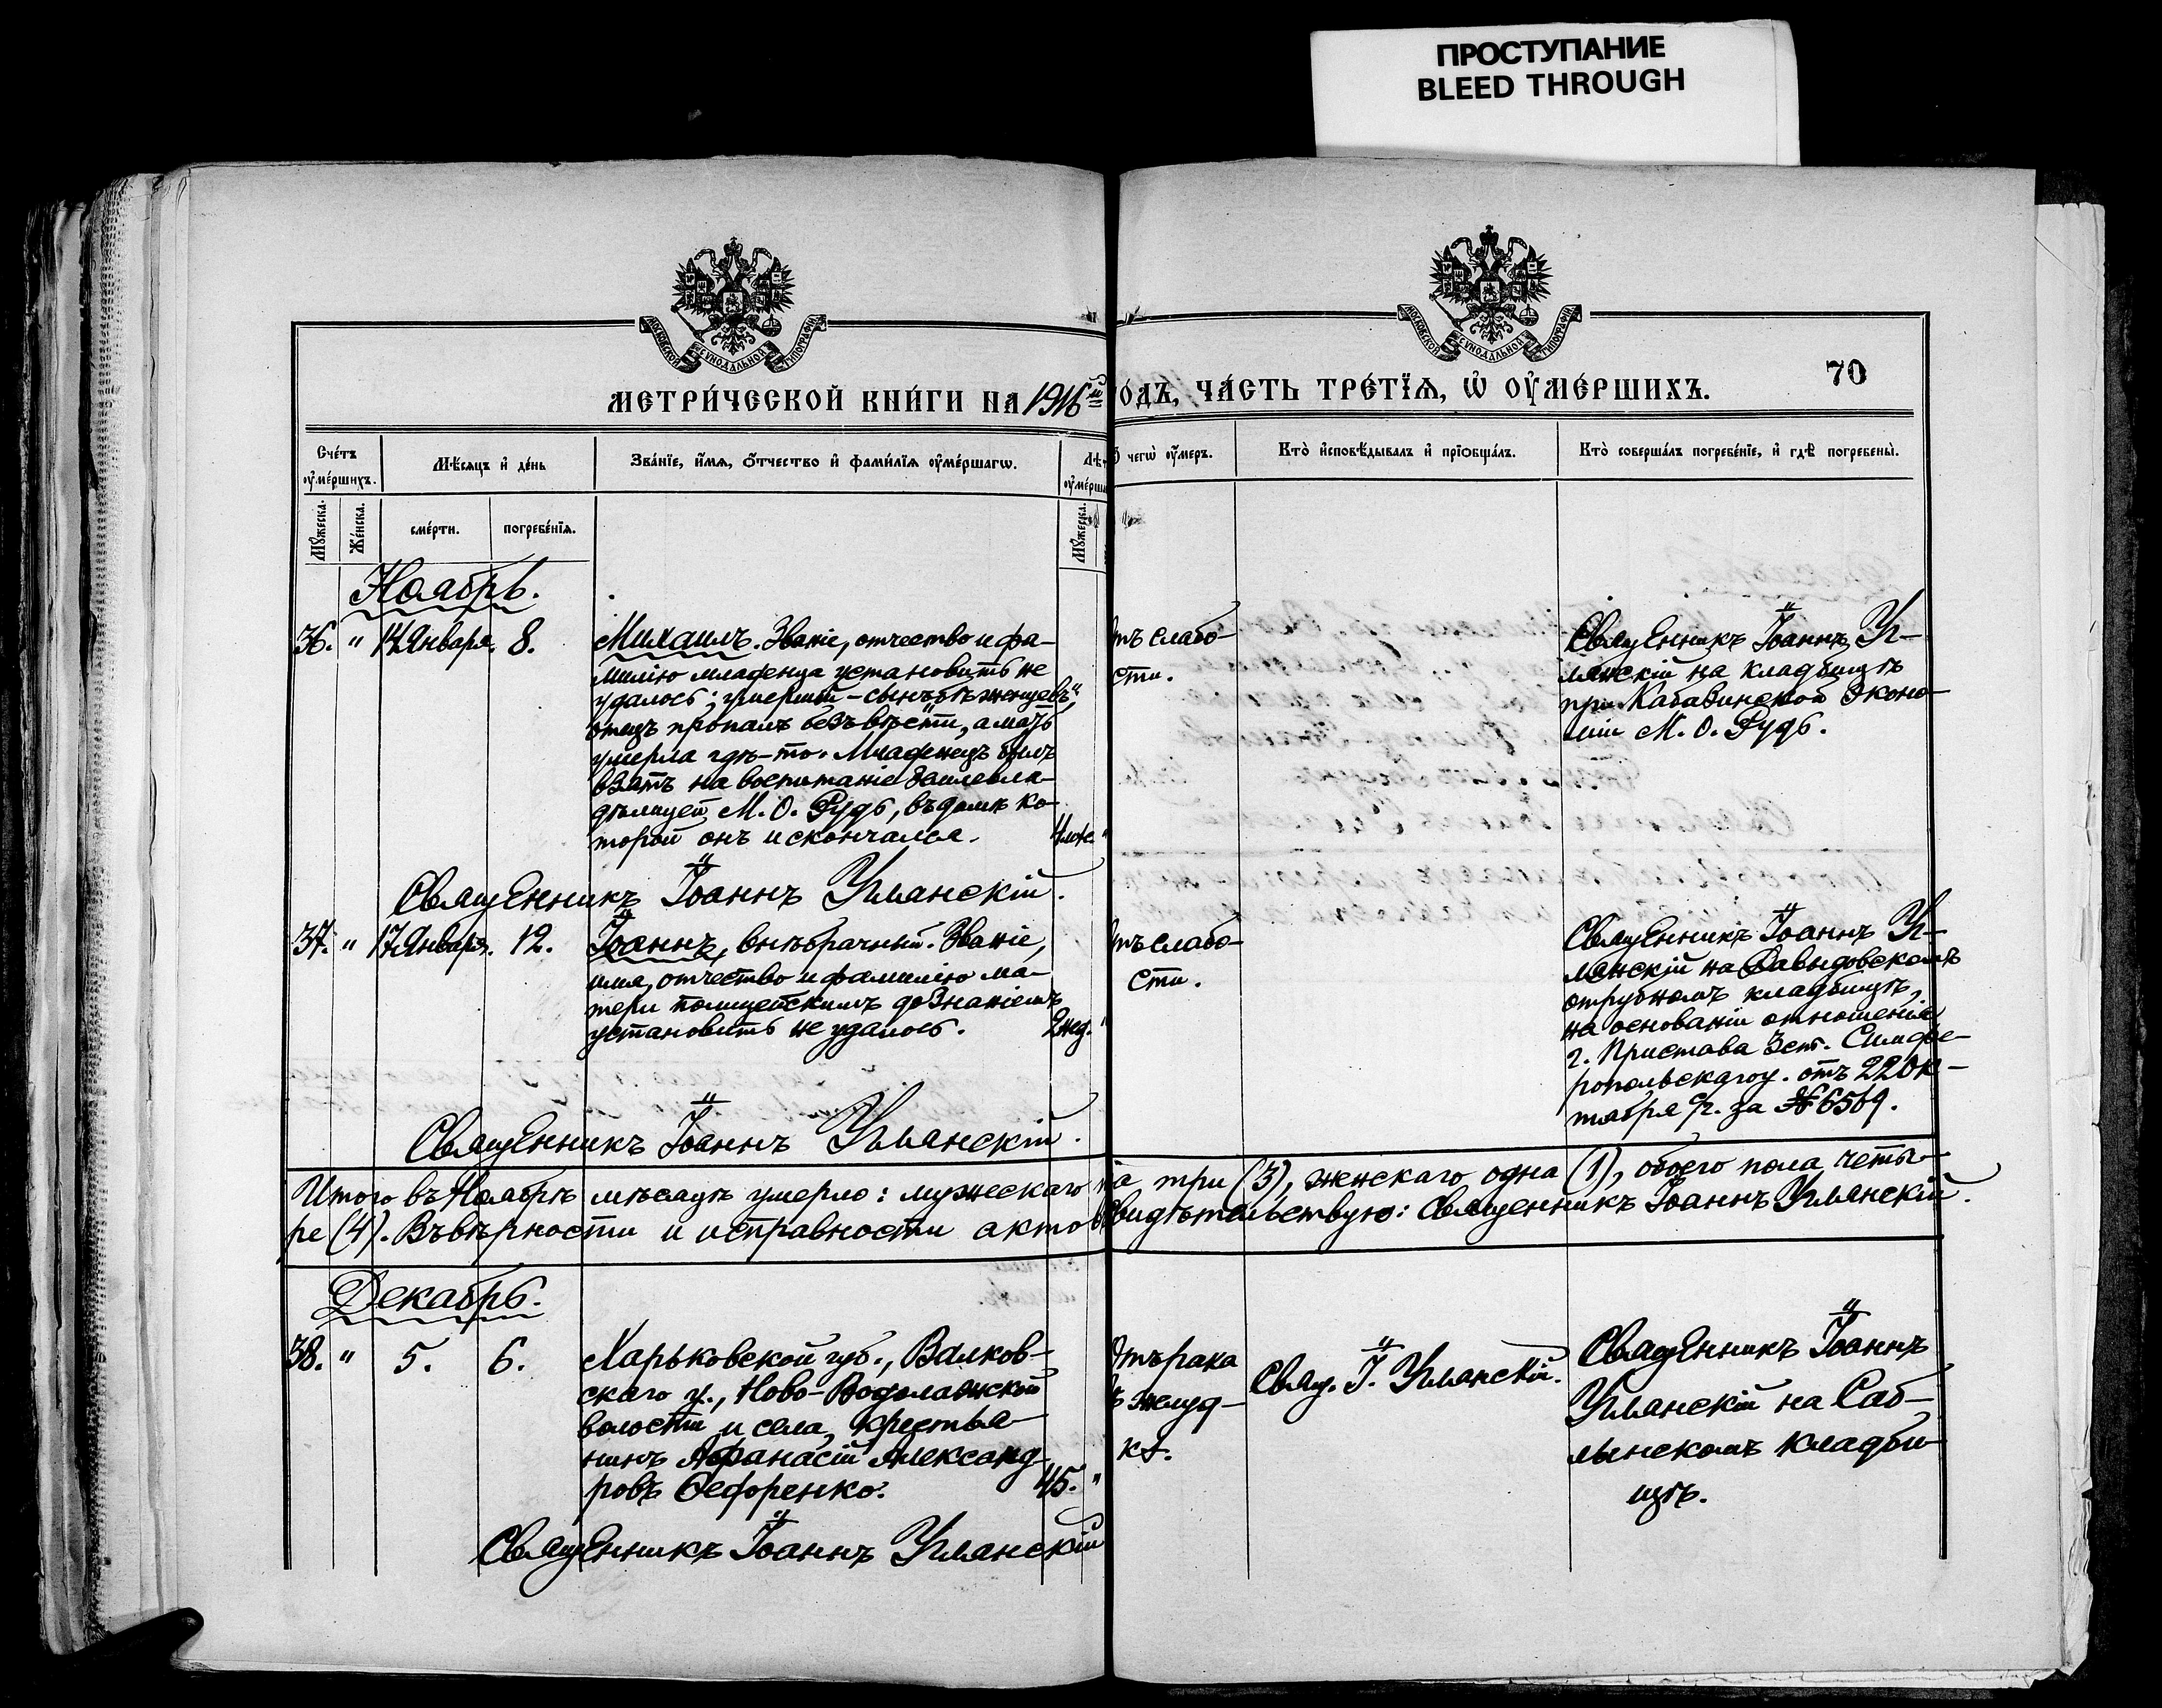 ПРОСТУПАНИЕ
BLEED THROUGH
МОСКОВСКОЙ СУНОДАЛЬНОЙ ТИПОГРАФІИ
МОСКОВСКОЙ СУНОДАЛЬНОЙ ТИПОГРАФІИ
70
МЕТРИ́ЧЕСКОЙ КНИ́ГИ НА 1916й
ОДЪ, ЧА́СТЬ ТРЕ́ТЇѦ, Ѡ ОУМЕ́РШИХЪ.
Сче́тъ оуме́ршихъ.
Мѣ́сяцъ и де́нь
Зва́нїе, и́мѧ, о́тчество и фами́лїѧ оуме́ршагѡ.
Лѣ́
оуме́рш
чегѡ оу́меръ.
Кто̀ исповѣ́дывалъ и прїѡбща́лъ.
Кто̀ соверша́лъ погребе́нїе, и гдѣ̀ погребены̀.
Мꙋ́жеска.
Же́нска.
сме́рти.
погребе́нїѧ.
Мꙋ́жеска.
Ноябрь.
36. " 14 Января. 8. Михаилъ. Званіе, отчество и фа-
милію младенца установить не
удалось; умершій – сынъ „бѣженцевъ“,
отецъ пропалъ безъ вѣсти, а мать
умерла гдѣ-то. Младенецъ былъ
взятъ на воспитаніе землевла-
дѣлицей М. О. Рудь, въ домѣ ко-
торой онъ и скончался.
тъ слабо-
сти.
Священникъ Іоаннъ Уг-
лянскій на кладбищѣ
при Кабазинской эконо-
міи М. О. Рудь.
Священникъ Іоаннъ Углянскій.
37. " 17 Января. 12. Іоаннъ, внѣбрачный. Званіе,
имя, отчество и фамилію ма-
тери полицейскимъ дознаніемъ
установить не удалось. 2 нед. "
тъ слабо-
сти.
Священникъ Іоаннъ Уг-
лянскій на Давыдовскомъ
отрубномъ кладбищѣ,
на основаніи отношенія
г. Пристава 3 ст. Симфе-
ропольскаго у. отъ 22 Ок-
тября с/г. за № 6569.
Священникъ Іоаннъ Углянскій.
Итого въ Ноябрѣ мѣсяцѣ умерло: мужескаго
а три (3), женскаго одна (1), обоего пола четы-
ре (4). Въ вѣрности и исправности актов
свидѣтельствую: Священникъ Іоаннъ Углянскій.
Декабрь.
38. " 5. 6. Харьковской губ., Валков-
скаго у., Ново-Водолажской
волости и села, крестья-
нинъ Афанасій Александ-
ровъ Ѳедоренко. 45. "
Отъ рака
въ желуд-
кѣ.
Свящ. І. Углянскій.
Священникъ Іоаннъ
Углянскій на Саб-
лынскомъ кладби-
щѣ.
Священникъ Іоаннъ Углянскій